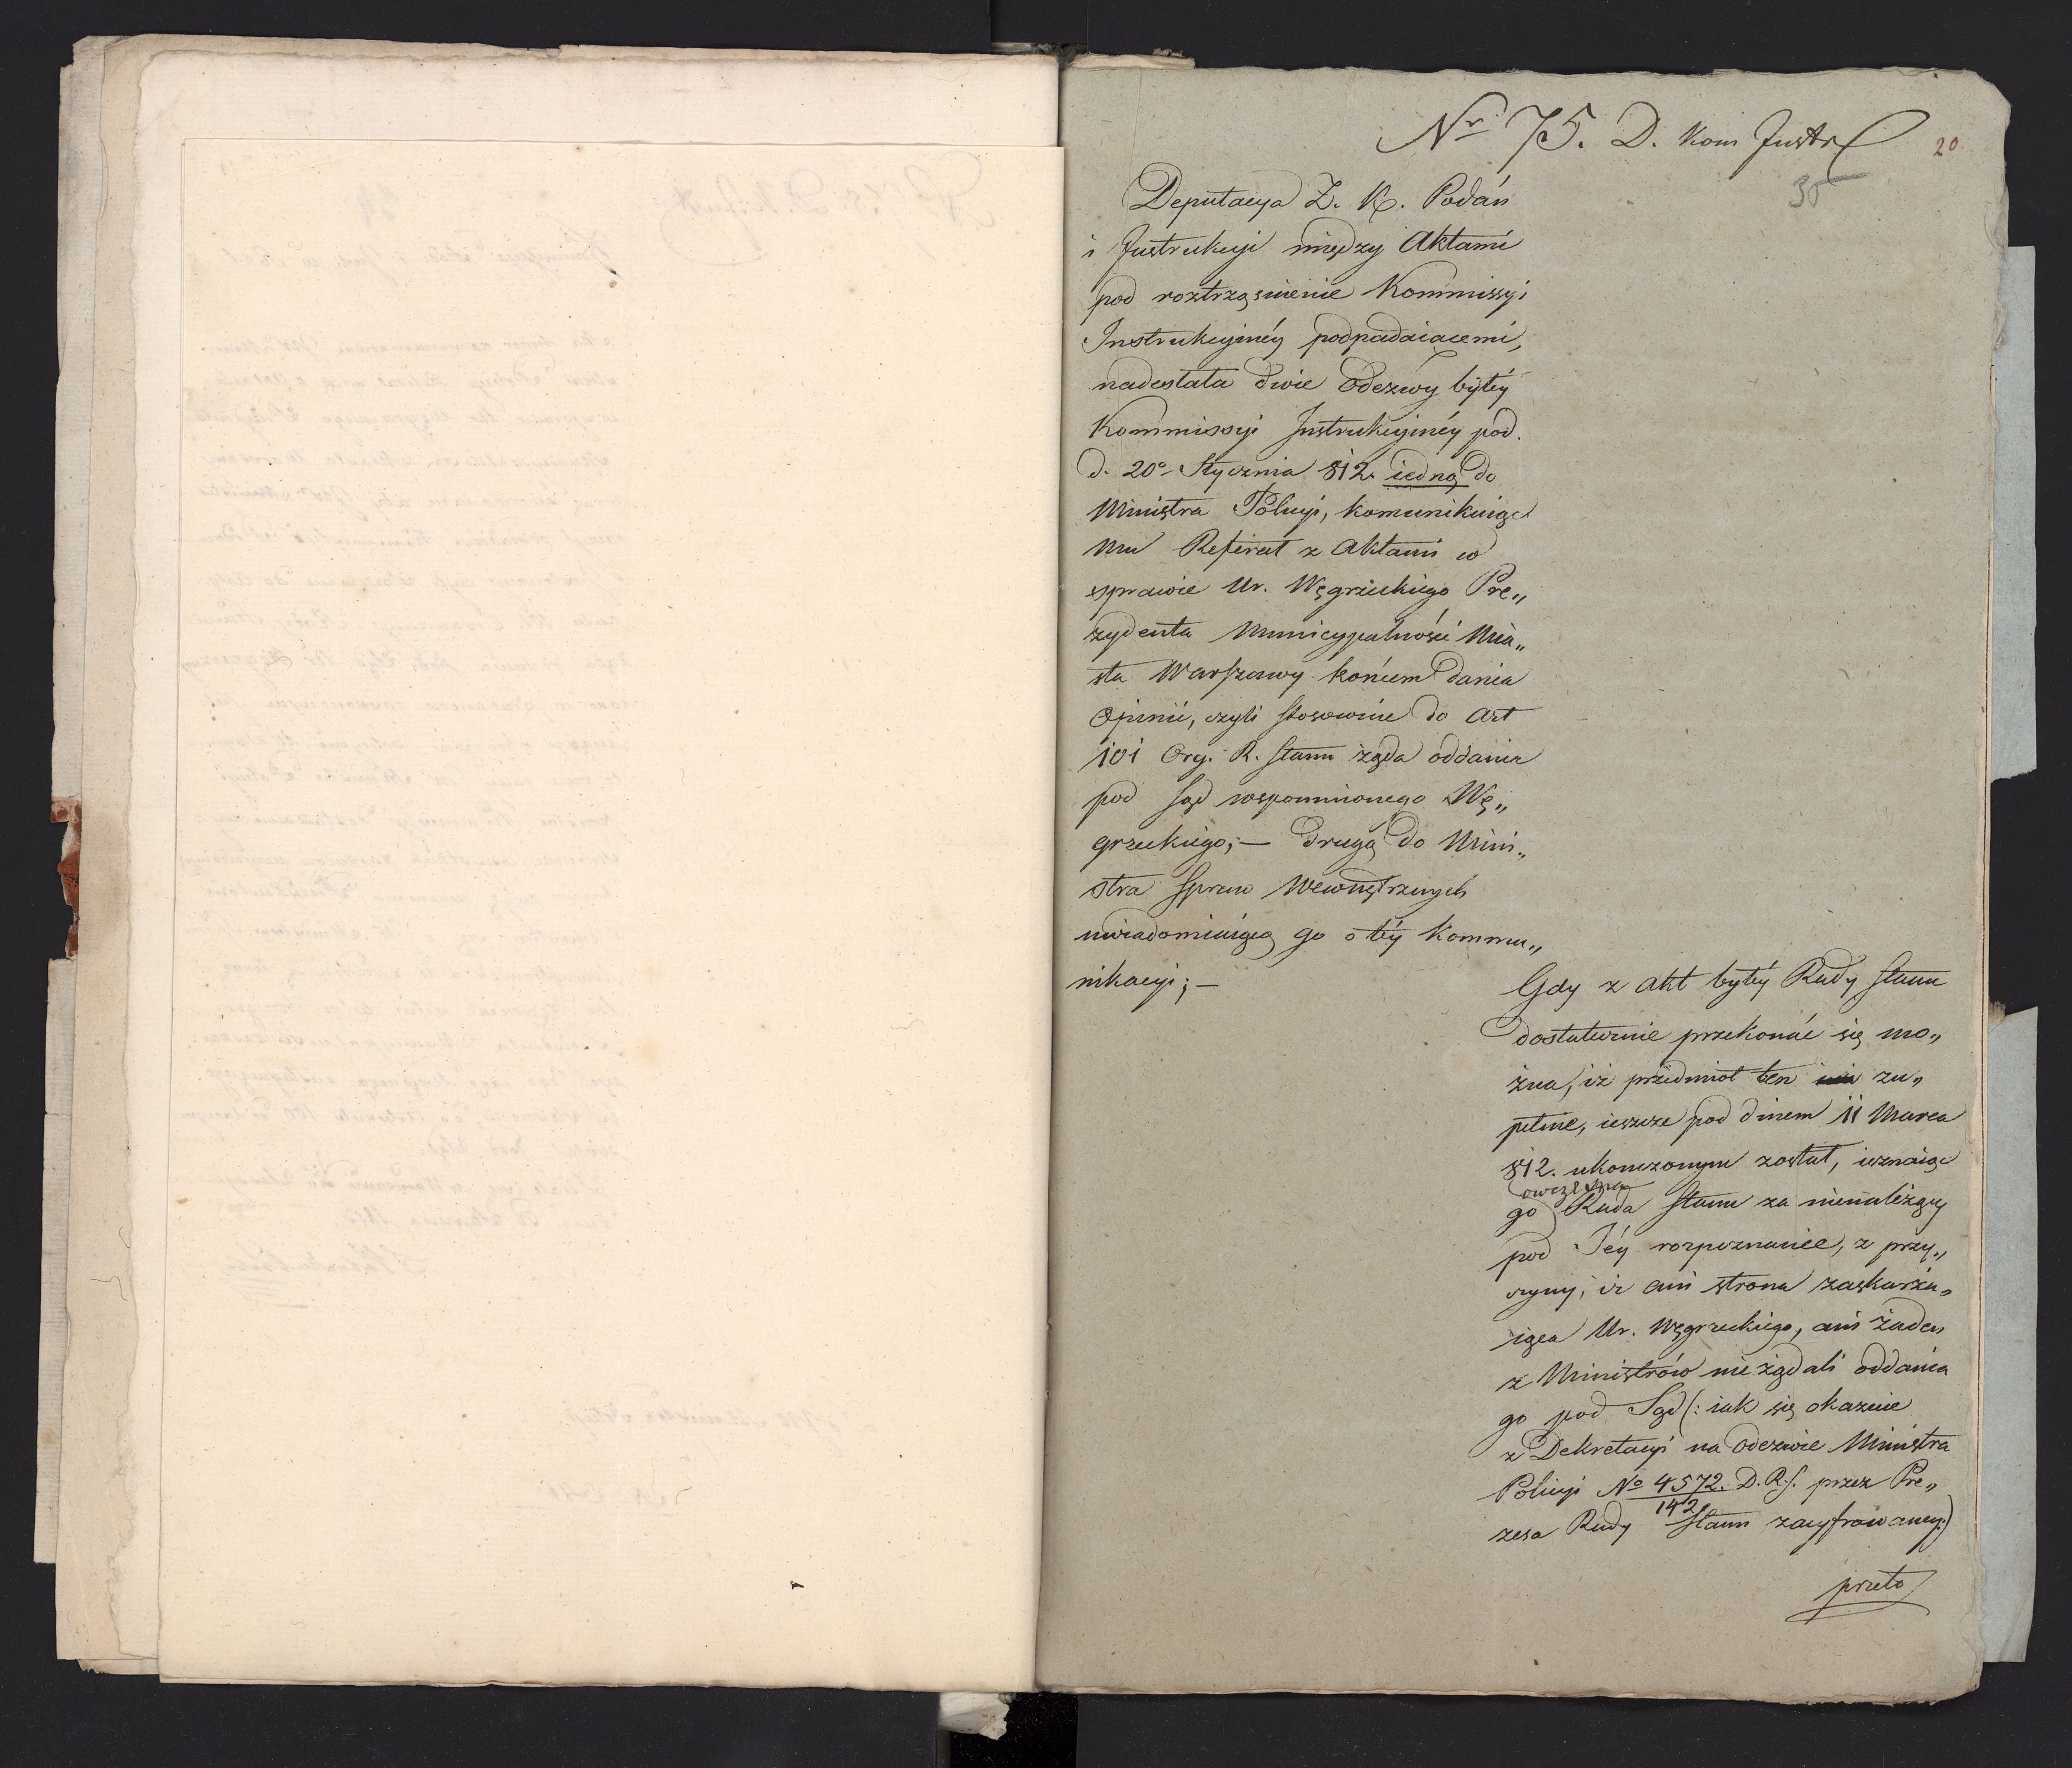 Nr 75. D. Kom Instr
20
35
Deputacya Z. K. Podań
i Instrukcyi między Aktami
pod roztrząsnienie Kommissyi
Instrukcyinéy podpadaiacemi,
nadesłała dwie Odezwy byłéy
Kommissyi Instrukcyinéy pod.
d. 20o Stycznia 812. iedną do
Ministra Policyi, komunikuiąc
mu Referat z Aktami w
sprawie Ur. Węgrzeckiego Pre„
zydenta Municypalności Mia„
sta Warszawy końcem dania
Opinii, czyli stosownie do Art
101 Org. R. Stanu żąda oddania
pod Sąd wspomnionego Wę„
grzeckiego; — drugą do Mini„
stra Spraw Wewnętrznych
uwiadomiaiącą go o téy Kommu„
nikacyi; —
Gdy z akt byłéy Rady Stanu
dostatecznie przekonać się mo„
żna, iż przedmiot ten zu„
pełnie, ieszcze pod dniem 11 Marca
812. ukończonym został, uznaiąc
owczesna
go Rada Stanu za nienależący
pod Jéy rozpoznanie, z przy„
czyny, iż ani strona zaskarża„
iąca Ur. Węgrzeckiego, ani żaden
z Ministrów nie żądali oddania
go pod Sąd (: iak się okazuie
z Dekretacyi na Odezwie Ministra
Policyi No 4572. D. R. S. przez Pre„
142
zesa Rady Stanu zacyfrowaney:)
przeto